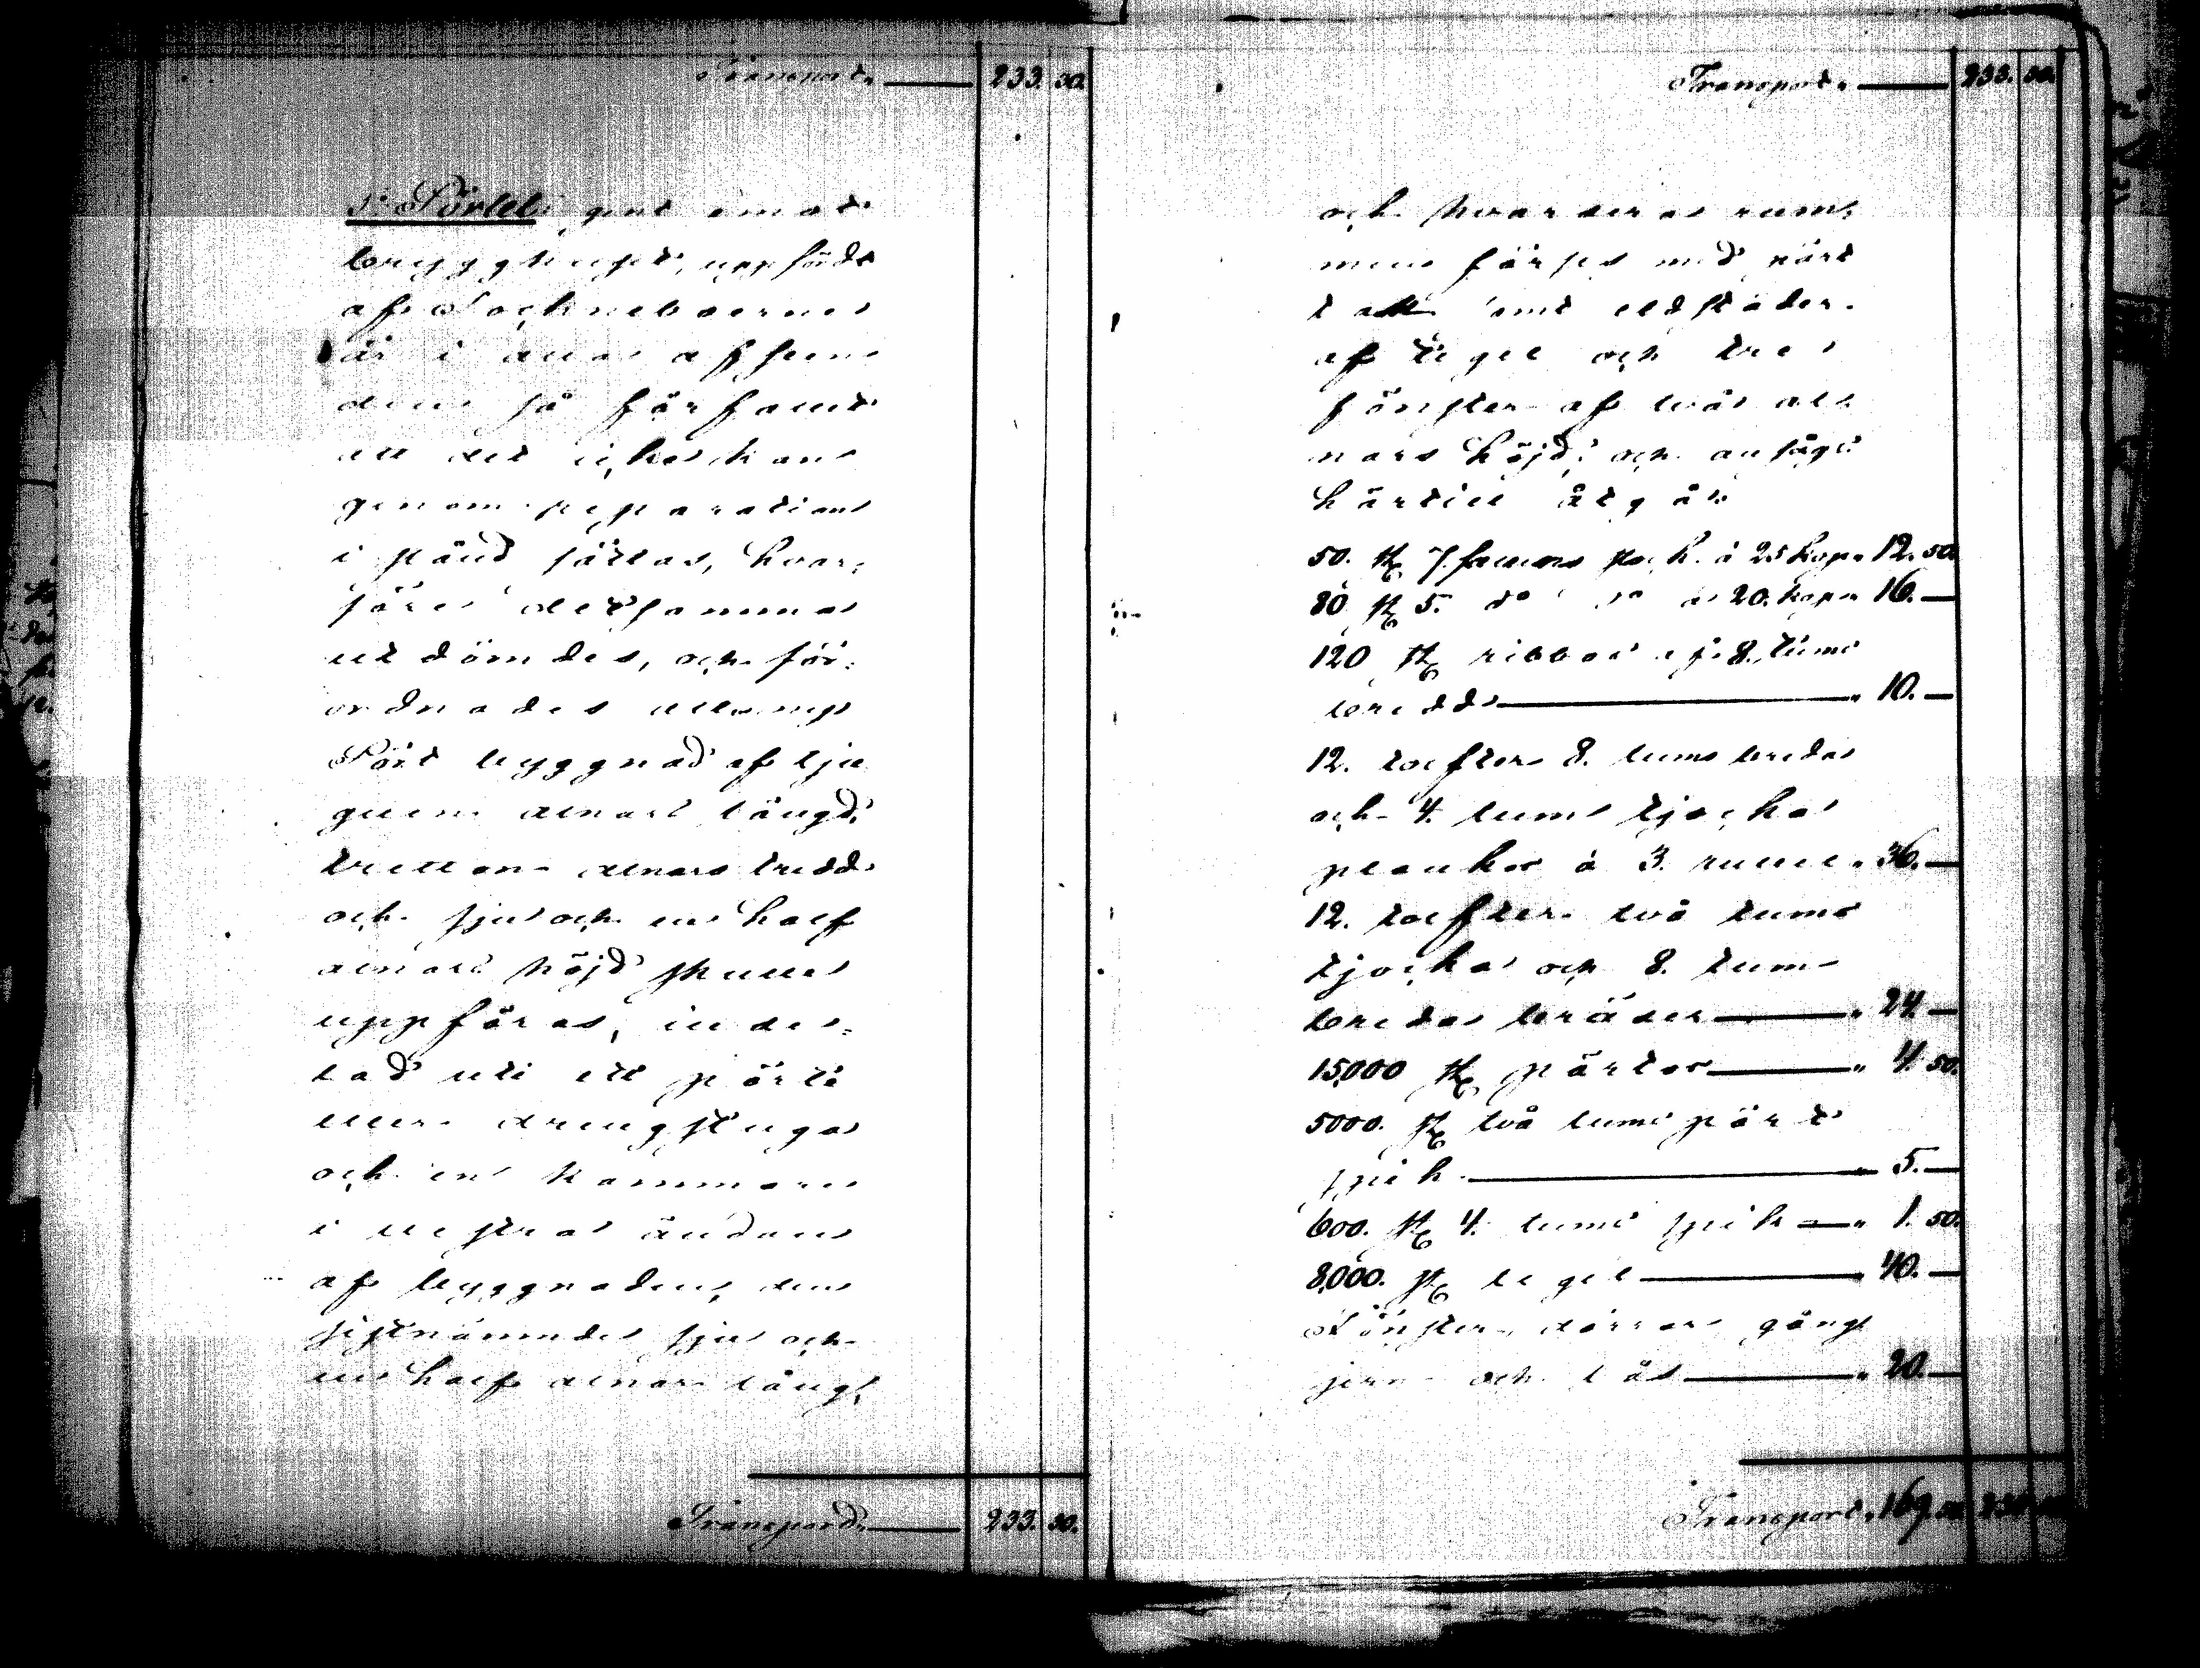 Transport „ 233. 50.
5:o Pörtet, gent emot
brygghuset, uppfördt
af Sockneboerne
är i alla afseen
den så förfallit
att det icke kan
genom reparation
i stånd sättas, hvar-
före detsamma
utdömdes, och för-
ordnades att en ny
Pört byggnad af tju
guen alnars längd,
tretton alnars bredd
och sju och en half
alnars höjd skulle
uppföras, inde-
lad uti ett pörte
eller drengstuga
och en kammare
i westra ändan
af byggnaden, den
sistnämnde sju och
en half alnar lång,
Transport „ 233. 50.
Transport „ 233. 50.
och hvarderas rum-
men förses med pört
tak samt eldstäder
af tegel och tre
fönster af två al-
nars höjd, och ansågs
härtill åtgå:
50. st. 7. famns stock à 25 kop „ 12. 50
80 st. 5. d:o d:o à 20. kop „ 16. —
120 st. ribbor af 8. tums
bredd „ 10. —
12. tolfter 8. tums breda
och 4. tums tjocka
plankor à 3. rubel „ 36. —
12. tolfter två tums
tjocka och 8. tums
breda bräder „ 24 —
15,000 st. pärtor „ 4. 50.
5000. st. två tums pärt
spik „ 5. —
600. st. 4. tums spik „ 1. 50.
8,000. st. tegel „ 40. —
Fönster, dörrar gång
jern och lås „ 20. —
Transport „ 169. 50 233. 50